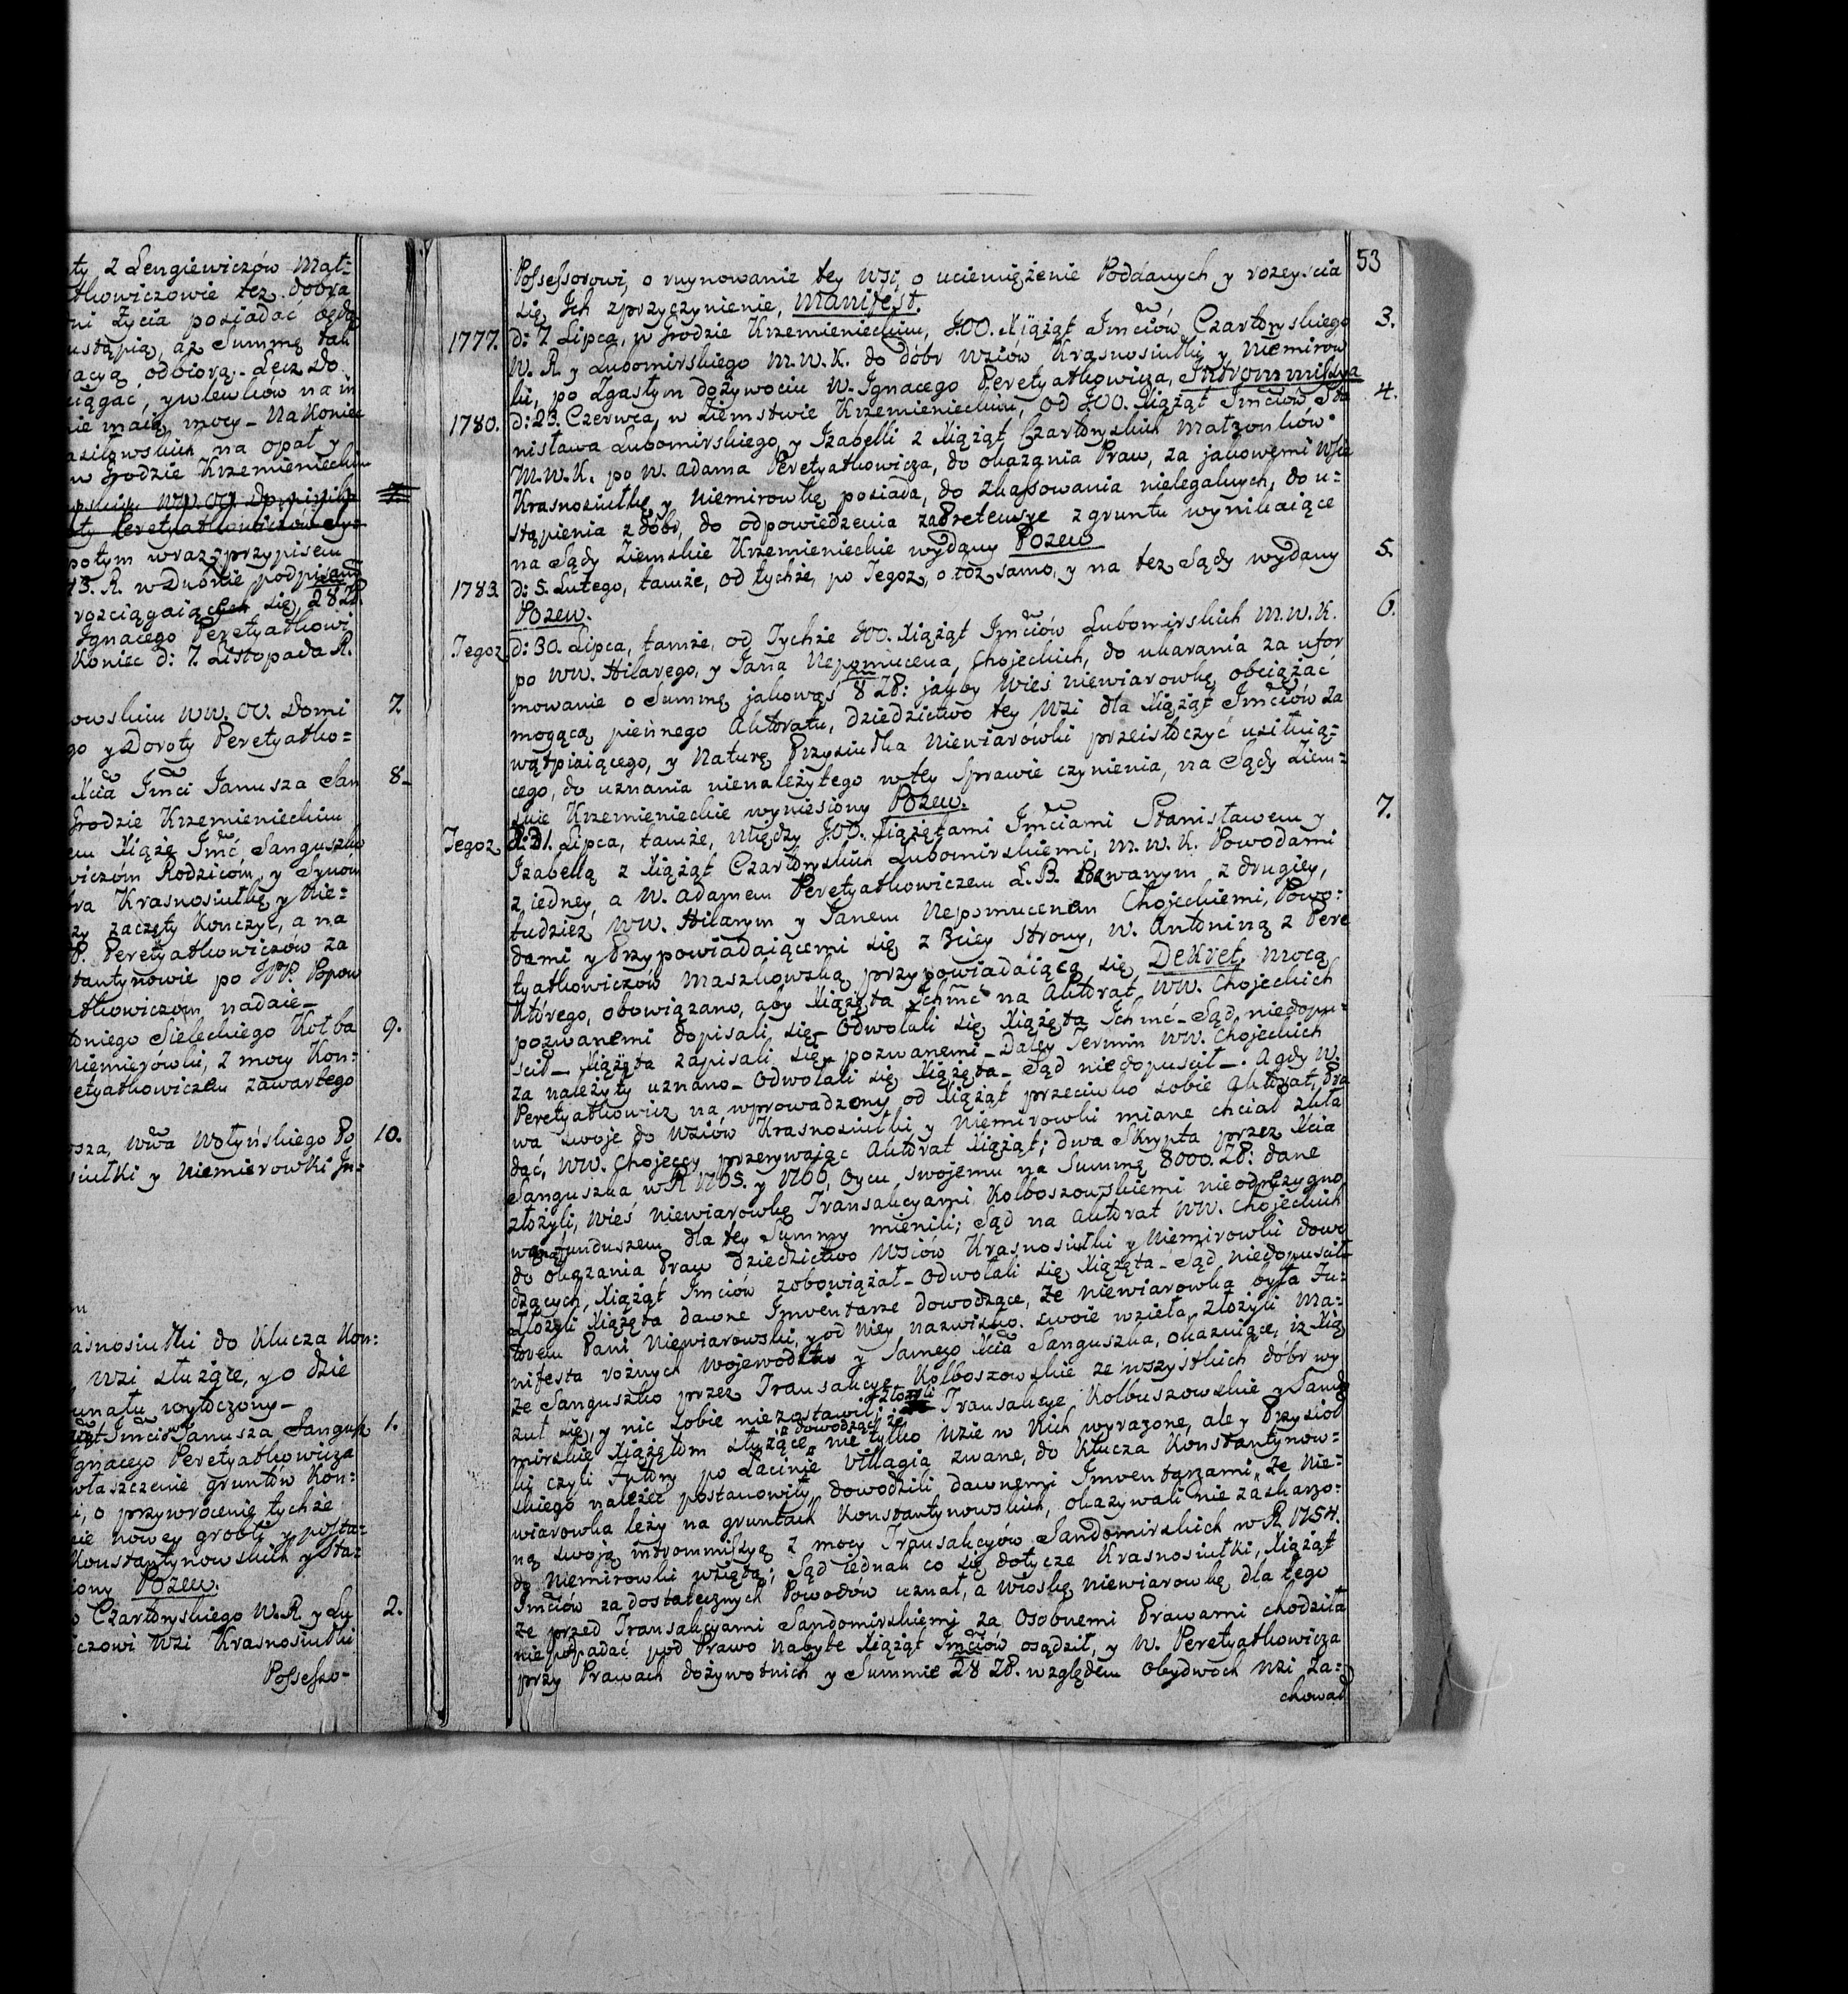 ty z Lengiewiczów Mał-
tkowiczowie też dobra
ni życia posiadać będą
ustąpią, aż Summę tak
acyą odbiorą. Lecz Do
ciągać, y wlewków na in
nie maią mocy - Na Koniec
asiłowskich na opał y
w Grodzie Krzemienieckim
ww. OO. Dominik
ty Peretyatkowiczów
połym wraz z przypisem
43. R. w Dubnie podpisany
rozciągaiących się, 28 Zł.
Ignacego Peretyatkowi
Koniec d: 7. Listopada R.
owskim WW. OO. Domi 7.
go y Doroty Peretyatko=
Xcia Imci Janusza San 8-
Grodzie Krzemienieckim
em Xiąże Imć Sanguszko
wiczom Rodzicom, y Synom
ra Krasnosiułkę y Nie=
zy zaczęty Kończył, a na
P. Peretyatkowiczów za
tantynowie po JPP. Popow
tkowiczom nadaie-
toniego Sieleckiego Kołba 9.
Niemirówki, z mocy Kon-
etyatkowiczem zawartego
osza, Wwa Wołyńskiego Po 10.
siułki y Niemierowki In=
asnosiułki do Klucza Kon:
wzi służące, y o dzie
unału wytoczony-
Xiąt Imciów Janusza Sangusz 1.
Ignacego Peretyatkowicza
właszczenie gruntów Kon=
i, o przywrocenie tychże
nie nowey grobli y posta=
Konstantynowskich y Sta=
iony Pozew.
o Czartoryskiego W. R. y Lu 2.
czowi Wzi Krasnosiułki
Possesso-
53
Possessorowi, o ruynowanie tey Wsi, o uciemiężenie Poddanych y rozeyścia
się Ich zprzyczynienie, Manifest.
1777. d: 7 Lipca, w Grodzie Krzemienieckim, JOO. Xiążąt Imciów Czartoryskiego 3.
W. R. y Lubomirskiego M.W.K. do dóbr Wziów Krasnosiułki y Niemirow
ki, po Zgasłym dożywociu W. Ignacego Peretyatkowicza, Intromissya
1780. d: 23. Czerwca, w Ziemstwie Krzemienieckim, od JOO. Xiążąt Imciów Sta 4.
nisława Lubomirskiego, y Izabelli z Xiążąt Czartoryskich Małżonków
M.W.K. po W. Adama Peretyatkowicza, do okazania Praw, za jakowemi Wsie
Krasnosiułkę y Niemirowkę posiada, do skassowania nielegalnych, do u=
stąpienia z dóbr, do odpowiedzenia za Pretensye z gruntu wynikaiące
na Sądy Ziemskie Krzemienieckie wydany Pozew
1783. d: 5. Lutego, tamże, od tychże, po Tegoż, o toż samo, y na też Sądy wydany 5.
Pozew.
Tegoż d: 30. Lipca, tamże, od Tychże JOO. Xiążąt Imciów Lubomirskich M.W.K. 6.
po WW. Hilarego, y Jana Nepomucena, Chojeckich, do ukarania za ufor
mowanie o Summę jakowąś 8 Zł: jakby Wieś Niewiarowkę obciążać
mogącą pieńnego Aktoratu, dziedzictwo tey Wzi dla Xiążąt Imciów za
wątpiaiącego, y Naturę Przysiułka Niewiarówki przeistoczyć usiłuią=
cego, do uznania nienależytego w tey Sprawie czynienia, na Sądy Ziem=
skie Krzemienieckie wyniesiony Pozew.
Tegoż d: 31. Lipca, tamże, między JOO. Xiążętami Imciami Stanisławem y 7.
Izabellą z Xiążąt Czartoryskich Lubomirskiemi, M.W.K. Powodami
z iedney, a W. Adamem Peretyatkowiczem L.B. Pozwanym z drugiey,
tudzież WW. Hilarym y Janem Nepomucenem Chojeckiemi, Powo=
dami y Przypowiadaiącemi się z 3ciey Strony, W. Antoniną z Pere
tyatkowiczów Maszkowską przypowiadaiącą się Dekret. Mocą
Którego, obowiązano, aby Xiążęta Ichmć na Aktorat WW. Chojeckich
pozwanemi dopisali się - Odwołali się Xiążęta Ichmć - Sąd niedopu=
ścił - Xiążęta zapisali się pozwanemi - Daley Termin WW. Chojeckich
za należyty uznano - Odwołali się Xiążęta - Sąd niedopuścił -. A gdy W.
Peretyatkowicz na wprowadzony od Xiążąt przeciwko sobie Aktorat, Pra
wa swoje do Wziów Krasnosiułki y Niemirowki miane chciał skła
dać, WW. Chojeccy przerywając Aktorat Xiążąt; dwa Skrypta przez Xcia
Sanguszka w R. 1765. y 1766, Oycu swojemu na Summę 8000. Zł: dane
złożyli, Wieś Niewiarowkę Transakcyami Kolboszowskiemi nieodrezygno
waną funduszem dla tey Summy mienili; Sąd na Aktorat WW. Chojeckich
do okazania Praw dziedzictwo Wziów Krasnosiułki y Niemirowki dowo
dzących, Xiążąt Imciów zobowiązał - Odwołali się Xiążęta - Sąd niedopuścił
Złożyli Xiążęta dawne Inwentarze dowodzące, że Niewiarowka była Fu=
torem Pani Niewiarowski, y od niey nazwisko swoie wzieła, Złożyli Ma=
nifesta rożnych Wojewodztw y Samego Xcia Sanguszka, okazuiące, iż Xią
że Sanguszko przez Transakcye Kolboszowskie ze wszystkich dóbr wy
zuł się, y nic sobie niezostawił; złożyli Transakcye Kolbuszowskie y Sando
mirskie Xiążętom służące, dowodzące że nie tylko Wzie w Nich wyrażone, ale y Przysioł
ki czyli Futory po Łacinie Villagia zwane, do Klucza Konstantynow=
skiego należeć postanowiły, dowodzili dawnemi Inwentarzami, że Nie=
wiarowka leży na gruntach Konstantynowskich, okazywali nie zaskarżo=
ną swoją intromissyą z mocy Transakcyów Sandomirskich w R. 1754.
do Niemirowki wziętą; Sąd iednak co się dotycze Krasnosiułki, Xiążąt
Imciów za dostatecznych Powodów uznał, a wioskę Niewiarowkę dla tego
że przed Transakcyami Sandomirskiemi za Osobnemi Prawami chodziła
nie podpadać pod Prawo nabyte Xiążąt Imciów osądził, y W. Peretyatkowicza
przy Prawach dożywotnich y Summie 28 Zł. względem obydwoch Wzi za=
chował